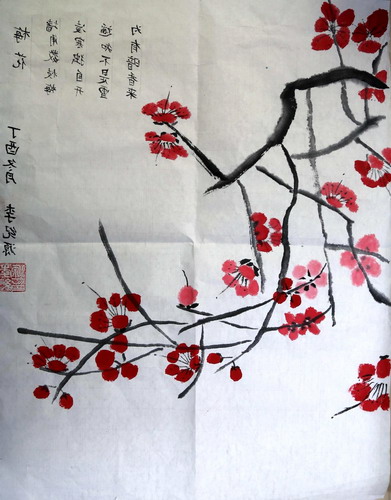 梅花
墙角数枝梅
凌寒独自开
遥知不是雪
为有暗香来
丁酉冬月 李纪源